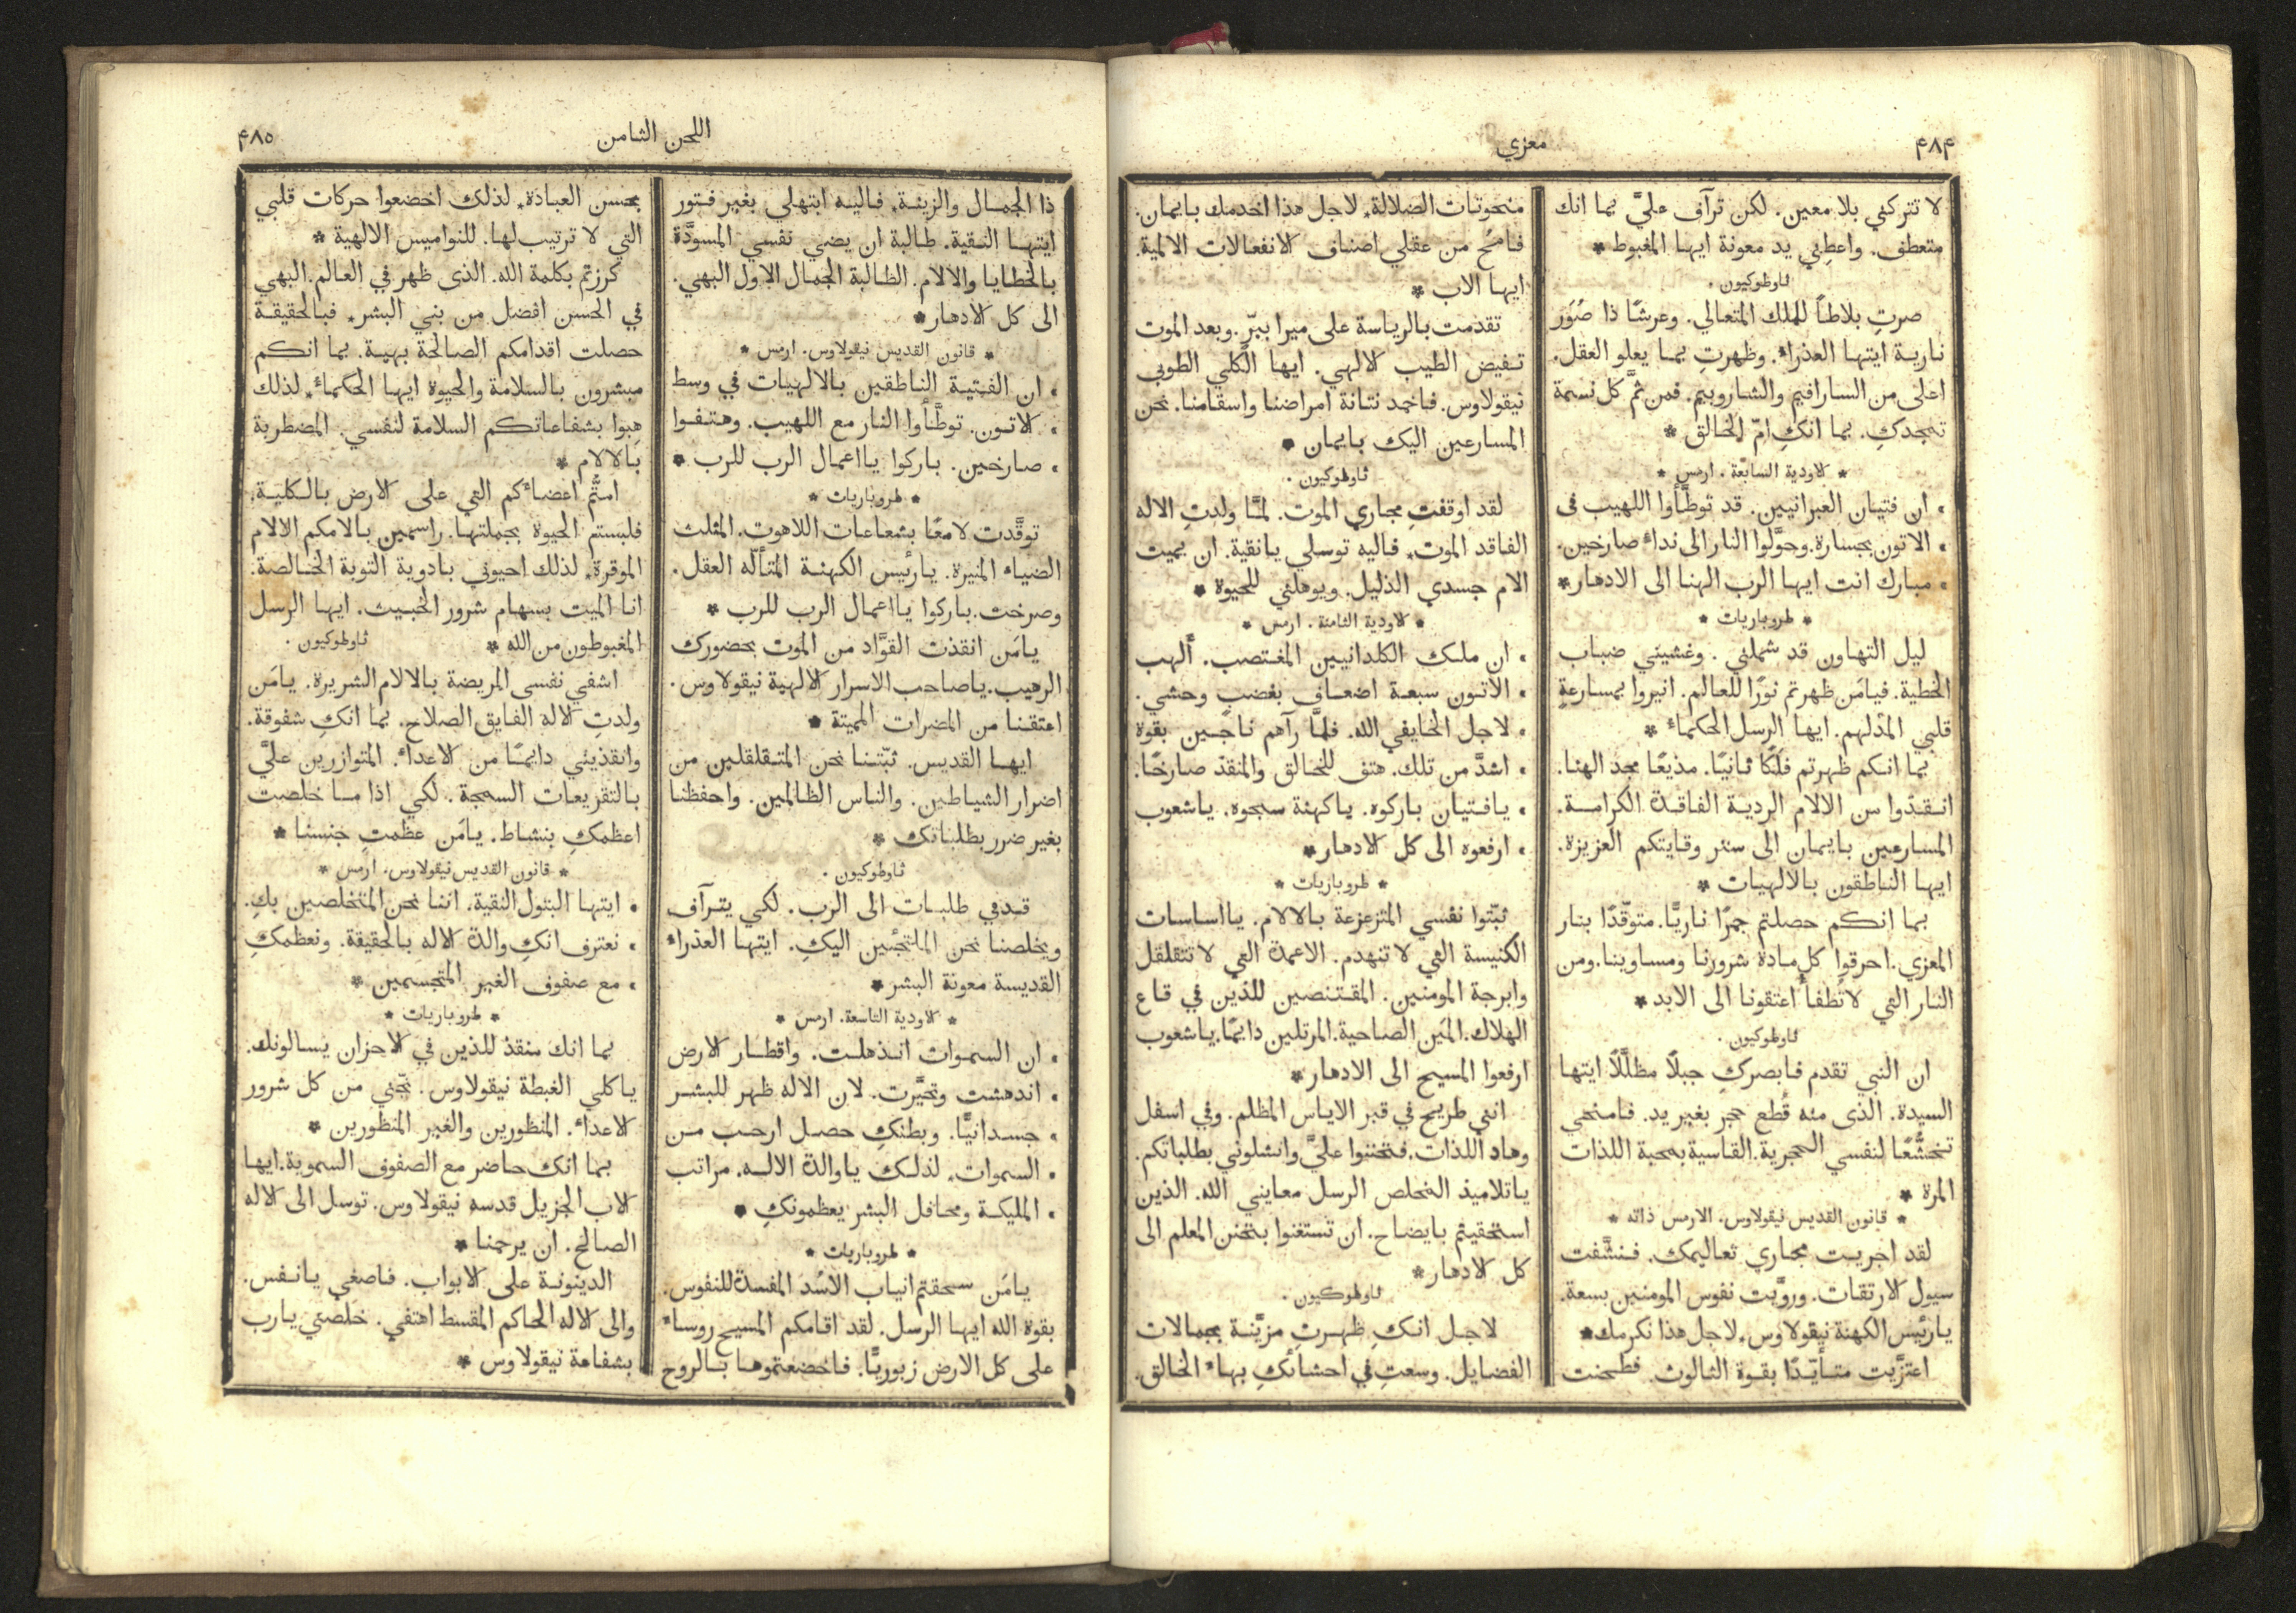 ۴۸۴
معزي
لا تتركني بلا معين. لكن ترآف عليَّ بما انك
متعطف. واعطِني يد معونة ايها المغبوط *
ثاوطوكيون.
صرتِ بلاطاً للملك المتعالي. وعرشًا ذا صُوَر
نارية ايتها العذراء. وظهرتِ بما يعلو العقل.
اعلى من السارافيم والشاروبيم. فمن ثَّم كل نسمة
تمجدكِ. بما انكِ امّ الخالق *
* الاودية السابعة. ارمس *
• ان فتيان العبرانيين. قد توطَّأوا اللهيب في
• الاتون بجسارة. وحوَّلوا النار الى نداء صارخين.
• مبارك انت ايها الرب الهنا الى الادهار *
* طروباريات *
ليل التهاون قد شملني. وغشيني ضباب
الخطية. فيامَن ظهرتم نورًا للعالم. انيروا بمسارعةٍ
قلبي المدلهم. ايها الرسل الحكماء *
بما انكم ظهرتم فلكًا ثانيًا. مذيعًا مجد الهنا.
انقذوا من الالام الردية الفاقدة الكرامة.
المسارعين بايمان الى ستر وقايتكم العزيزة.
ايها الناطقون بالالهيات *
بما انكم حصلتم جمرًا ناريًّا. متوقّدًا بنار
المعزي. احرقوا كل مادة شرورنا ومساوينا. ومن
النار التي لا تُطفأ اعتقونا الى الابد *
ثاوطوكيون.
ان النبي تقدم فابصركِ جبلًا مظلَّلًا ايتها
السيدة. الذى منه قُطع حجر بغير يد. فامنحي
تخشُّعًا لنفسي الحجرية. القاسية بمحبة اللذات
المرة *
* قانون القديس نيقولاوس. الارمس ذاته *
لقد اجريت مجاري تعاليمك. فنشَّفت
سيول الارتقات. وروَّيت نفوس المومنين بسعة.
يارئيس الكهنة نيقولاوس. لاجل هذا نكرمك *
اعتزَّيت متأيّدًا بقوة الثالوث. فطحنت
منحوتات الضلالة. لاجل هذا اخدمك بايمان.
فامحُ من عقلي اصناف الانفعالات الالمية.
ايها الاب *
تقدمت بالرياسة على ميرا ببرّ. وبعد الموت
تفيض الطيب الالهي. ايها الكلي الطوبى
نيقولاوس. فاخمد نتانة امراضنا واسقامنا. نحن
المسارعين اليك بايمان *
ثاوطوكيون.
لقد اوقفتِ مجاري الموت. لمَّا ولدتِ الاله
الفاقد الموت. فاليه توسلي يانقية. ان يميت
الام جسدي الذليل. ويوهلني للحيوة *
* الاودية الثامنة. ارمس *
• ان ملك الكلدانيين المغتصب. ألهب
• الاتون سبعة اضعاف بغضبٍ وحشي.
• لاجل الخايفي الله. فلمَّا رآهم ناجين بقوة
• اشدَّ من تلك. هتف للخالق والمنقذ صارخًا.
• يافتيان باركوه. ياكهنة سبحوه. ياشعوب
• ارفعوه الى كل الادهار *
* طروباريات *
ثبّتوا نفسي المتزعزعة بالالام. يااساسات
الكنيسة التي لا تنهدم. الاعمدة التي لا تتقلقل
وابرجة المومنين. المقتنصين للذين في قاع
الهلاك. المَين الصاحية. المرتلين دايمًا. ياشعوب
ارفعوا المسيح الى الادهار *
انني طريح في قبر الاياس المظلم. وفي اسفل
وهاد اللذات. فتحننوا عليَّ وانشلوني بطلباتكم.
ياتلاميذ المخلص الرسل معايني الله. الذين
استحقيتم بايضاح. ان تستغنوا بتحنن المعلم الى
كل الادهار *
ثاوطوكيون.
لاجل انكِ ظهرتِ مزيَّنة بجمالات
الفضايل. وسعتِ في احشائكِ بهاء الخالق.
اللحن الثامن
۴٨٥
ذا الجمال والزينة. فاليه ابتهلي بغير فتور
ايتها النقية. طالبة ان يضي نفسي المسودَّة
بالخطايا والالام. الطالبة الجمال الاول البهي.
الى كل الادهار *
* قانون القديس نيقولاوس. ارمس *
• ان الفتية الناطقين بالالهيات في وسط
• الاتون. توطَّأوا النار مع اللهيب. وهتفوا
• صارخين. باركوا يااعمال الرب للرب *
* طروباريات *
توقَّدت لامعًا بشعاعات اللاهوت. المثلث
الضياء المنيرة. يارئيس الكهنة المتألّه العقل.
وصرخت. باركوا يااعمال الرب للرب *
يامَن انقذت القوَّاد من الموت بحضورك
الرهيب. ياصاحب الاسرار الالهية نيقولاوس.
اعتقنا من المضرات المميتة *
ايها القديس. ثبّتنا نحن المتقلقلين من
اضرار الشياطين. والناس الظالمين. واحفظنا
بغير ضرر بطلباتك *
ثاوطوكيون.
قدمي طلبات الى الرب. لكي يترآف
ويخلصنا نحن الملتجئين اليكِ. ايتها العذراء
القديسة معونة البشر *
* الاودية التاسعة. ارمس *
• ان السموات انذهلت. واقطار الارض
• اندهشت وتحيَّرت. لان الاله ظهر للبشر
• جسدانيًّا. وبطنكِ حصل ارحب من
• السموات. لذلك ياوالدة الاله. مراتب
• المليكة ومحافل البشر يعظمونكِ *
* طروباريات *
يامَن سحقتم انياب الاسُد المفسدة للنفوس.
بقوة الله ايها الرسل. لقد اقامكم المسيح روساء
على كل الارض زبوريًّا. فاخضعتموها بالروح
بحسن العبادة. لذلك اخضعوا حركات قلبي
التي لا ترتيب لها. للنواميس الالهية *
كرزتم بكلمة الله. الذى ظهر في العالم. البهي
في الحسن افضل من بني البشر. فبالحقيقة
حصلت اقدامكم الصالحة بهية. بما انكم
مبشرون بالسلامة والحيوة ايها الحكماء. لذلك
هبوا بشفاعاتكم السلامة لنفسي. المضطربة
بالالام *
امتُّم اعضاءكم التي على الارض بالكلية.
فلبستم الحيوة بجملتها. راسمين بالامكم الالام
الموقرة. لذلك احيوني بادوية التوبة الخالصة.
انا الميت بسهام شرور الخبيث. ايها الرسل
المغبوطون من الله * ثاوطوكيون.
اشفي نفسى المريضة بالالام الشريرة. يامَن
ولدتِ الاله الفايق الصلاح. بما انكِ شفوقة.
وانقذيني دايمًا من الاعداء. المتوازرين عليَّ
بالتقريعات السمجة. لكي اذا ما خلصت
اعظمكِ بنشاط. يامَن عظمتِ جنسنا *
* قانون القديس نيقولاوس. ارمس *
• ايتها البتول النقية. اننا نحن المتخلصين بكِ.
• نعترف انكِ والدة الاله بالحقيقة. ونعظمكِ
• مع صفوف الغير المتجسمين *
* طروباريات *
بما انك منقذ للذين في الاحزان يسالونك.
ياكلي الغبطة نيقولاوس. نجّني من كل شرور
الاعداء. المنظورين والغير المنظورين *
بما انك حاضر مع الصفوف السموية. ايها
الاب الجزيل قدسه نيقولاوس. توسل الى الاله
الصالح. ان يرحمنا *
الدينونة على الابواب. فاصغي يانفس.
والى الاله الحاكم المقسط اهتفي. خلصني يارب
بشفاعة نيقولاوس *